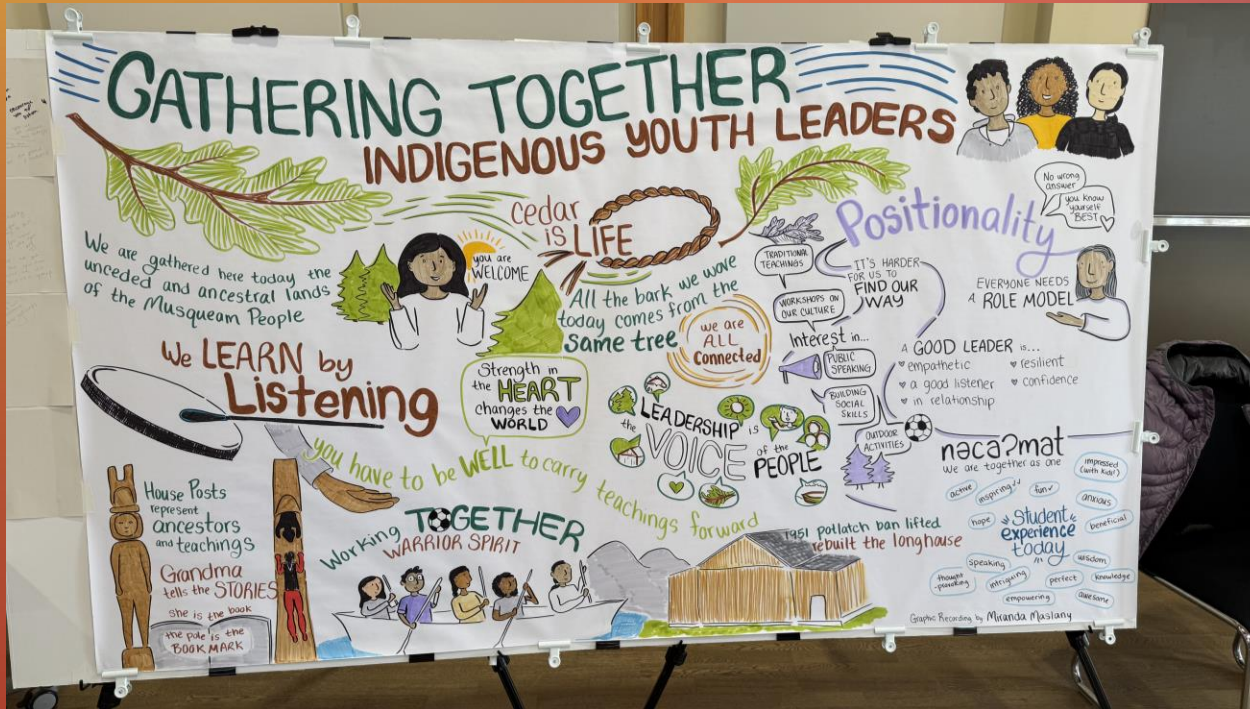 GATHERING TOGETHER
INDIGENOUS YOUTH LEADERS
We are gathered here today the
unceded and ancestral lands
of the Musqueam People
you are
WELCOME
cedar
is LIFE
All the bark we wove
today comes from the
same tree
we are
ALL
Connected
We LEARN by
Listening
Strength in
the HEART
changes the
WORLD
you have to be WELL to carry teachings forward
House Posts
represent
ancestors
and teachings
Grandma
tells the STORIES
she is the book
the pole is the
BOOK MARK
Working TOGETHER
WARRIOR SPIRIT
LEADERSHIP is
the VOICE
of the
PEOPLE
1951 potlatch ban lifted
rebuilt the longhouse
Positionality
No wrong
answer
you know
yourself
BEST
TRADITIONAL
TEACHINGS
WORKSHOPS ON
OUR CULTURE
Interest in...
PUBLIC
SPEAKING
BUILDING
SOCIAL
SKILLS
OUTDOOR
ACTIVITIES
IT'S HARDER
FOR US TO
FIND OUR
WAY
EVERYONE NEEDS
A ROLE MODEL
A GOOD LEADER is...
empathetic
a good listener
in relationship
resilient
confidence
nəcaʔmat
We are together as one
Student
experience
today
active
inspiring
fun
impressed
(with kids!)
anxious
hope
beneficial
speaking
wisdom
thought
provoking
intriguing
perfect
knowledge
empowering
awesome
Graphic Recording by Miranda Maslany